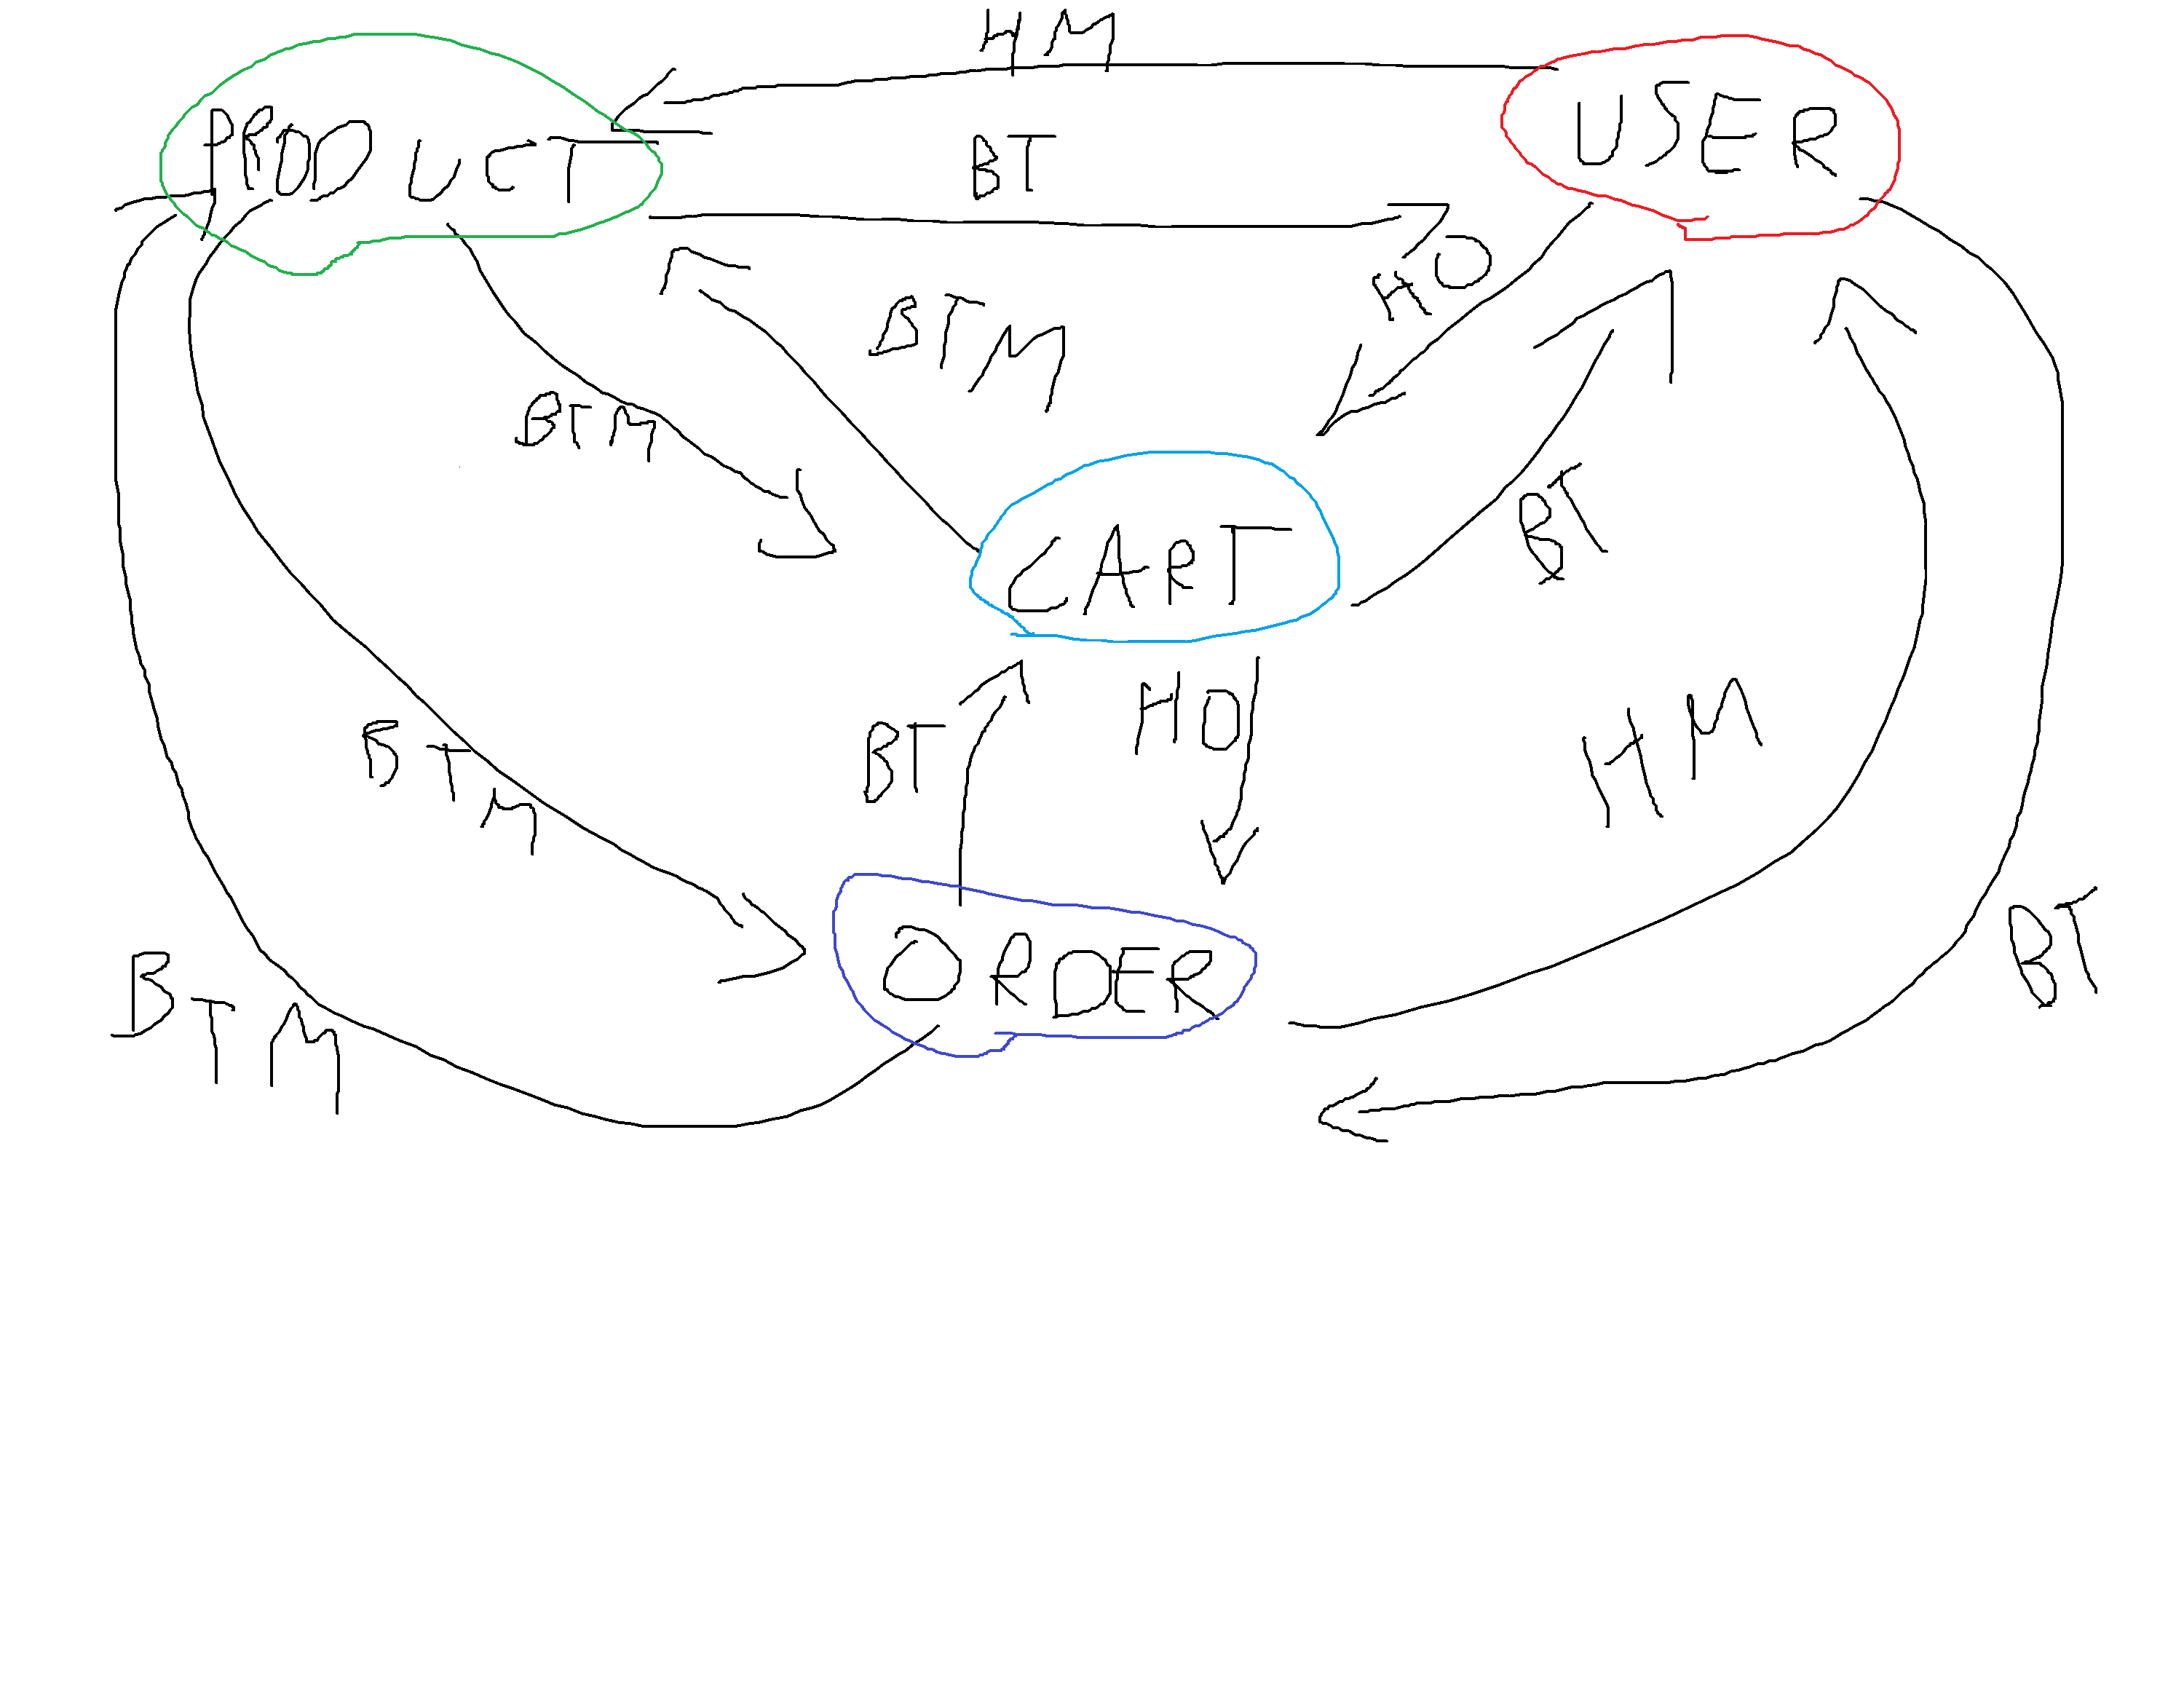 HM
PRODUCT
USER
BT
HO
BTM
BTM
BT
CART
HO
BT
HM
BTM
ORDER
BT
BTM